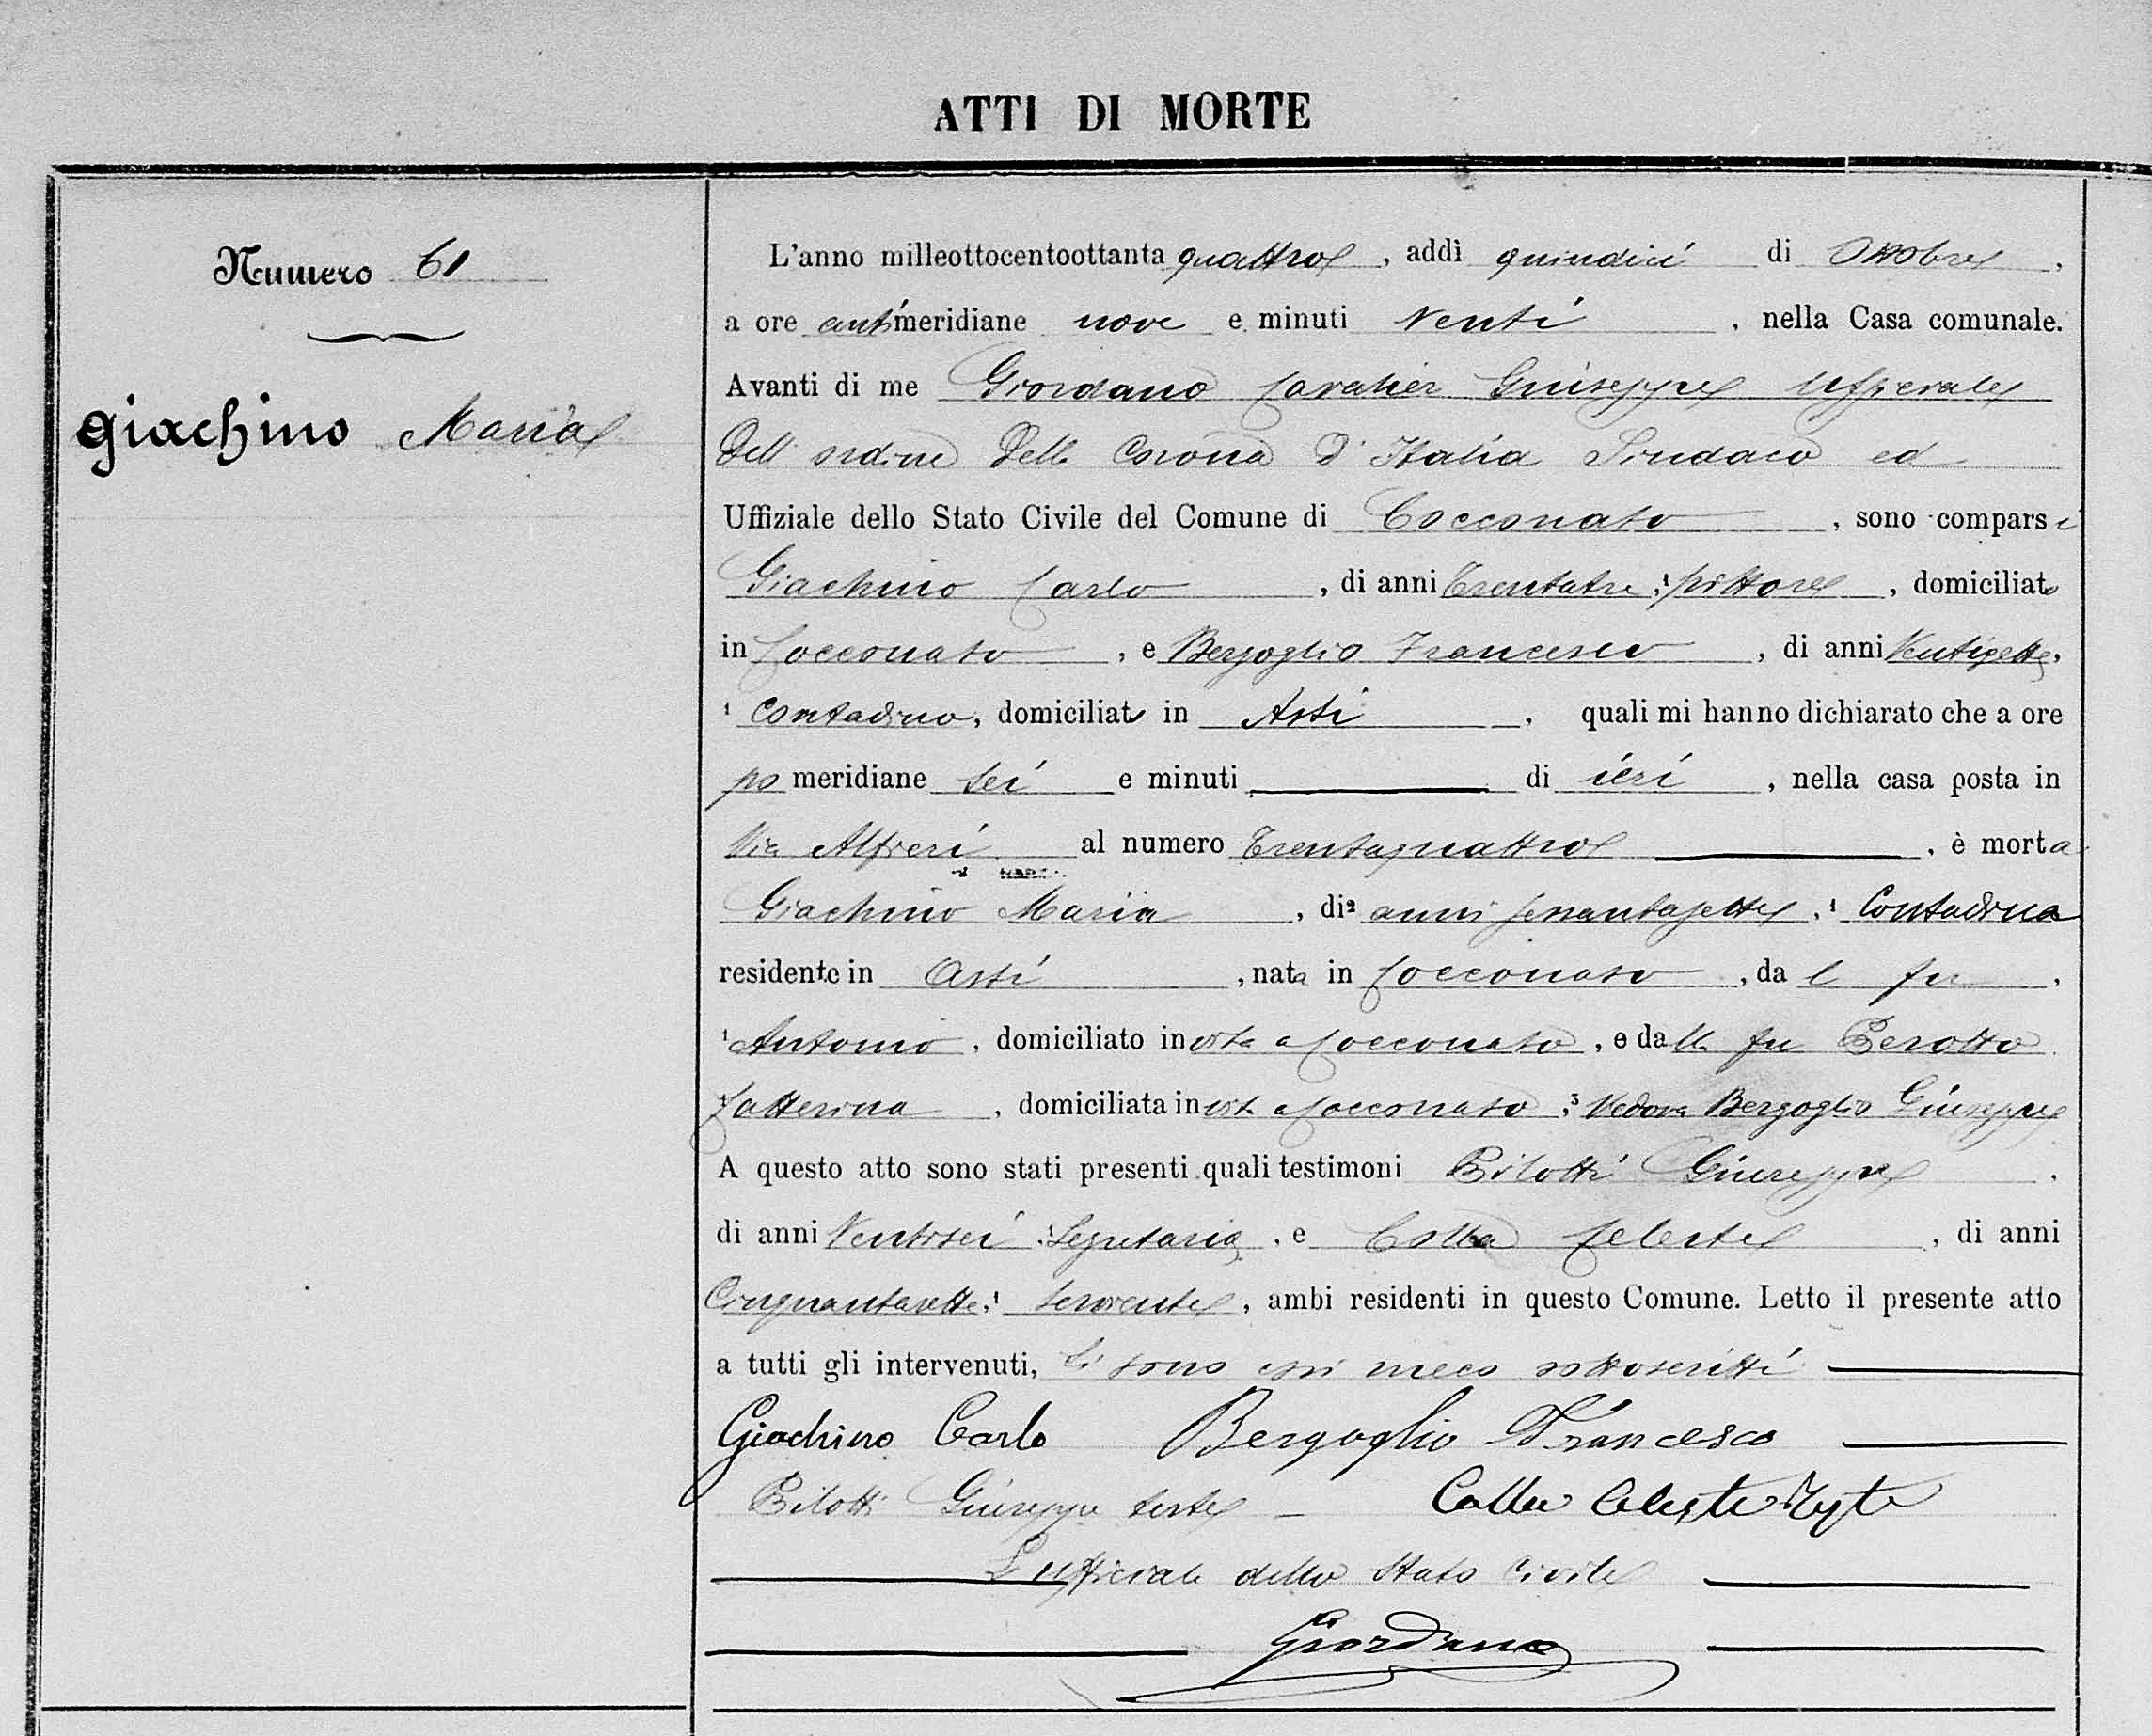 ATTI DI MORTE
Numero 61
Giachino Maria
L'anno milleottocentoottanta quattro, addì quindici di Ottobre,
a ore antimeridiane nove e minuti venti, nella Casa comunale.
Avanti di me Giordano Cavalier Giuseppe Ufficiale
dell'ordine della Corona d'Italia Sindaco ed
Uffiziale dello Stato Civile del Comune di Cocconato, sono comparsi
Giachino Carlo, di anni trentatre, ¹ pittore, domiciliato
in Cocconato, e Bergoglio Francesco, di anni ventisette,
¹ contadino, domiciliato in Asti, quali mi hanno dichiarato che a ore
po meridiane sei e minuti di ieri, nella casa posta in
Via Alfieri al numero trentaquattro, è morta
Giachino Maria, di² anni sessantasette, ¹ Contadina
residente in Asti, nata in Cocconato, da l fu,
¹ Antonio, domiciliato in vita a Cocconato, e dalla fu Perotto
Catterina, domiciliata in vita a Cocconato, ³ vedova Bergoglio Giuseppe
A questo atto sono stati presenti quali testimoni Bilotti Giuseppe.
di anni Ventisei, ¹ Segretario, e Colla Celeste, di anni
Cinquantasette, ¹ servente, ambi residenti in questo Comune. Letto il presente atto
a tutti gli intervenuti, si sono essi meco sottoscritti
Giachino Carlo Bergoglio Francesco
Bilotti Giuseppe teste - Colla Celeste
L'ufficiale dello Stato Civile
Giordano